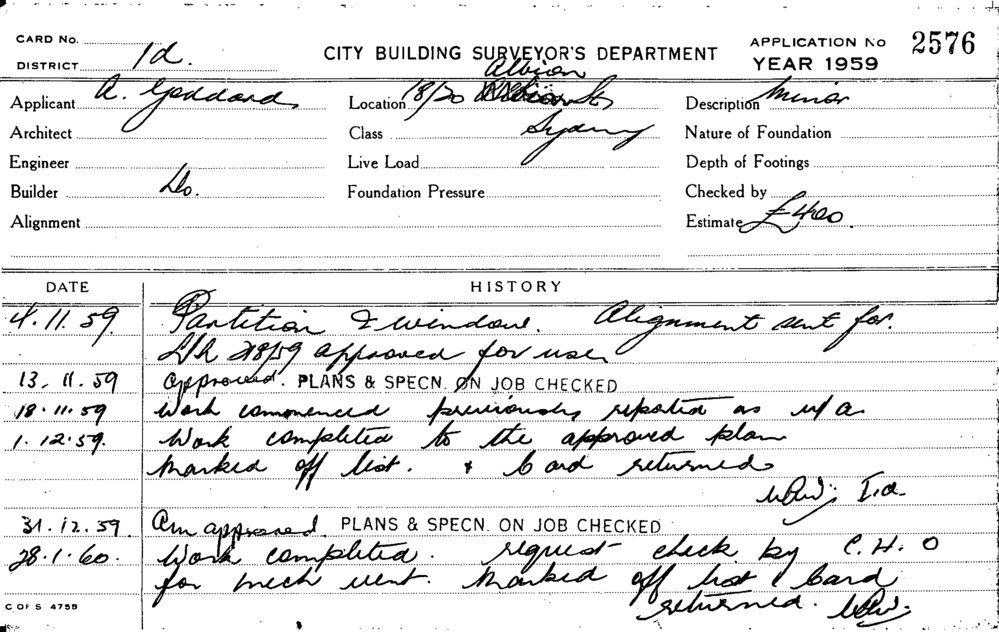 CARD No.
DISTRICT 1d.
CITY BUILDING SURVEYOR'S DEPARTMENT
APPLICATION No 2576
YEAR 1959
Applicant A. Goddard
Location 18/20 Albion St
Sydney
Description Minor
Architect
Class
Nature of Foundation
Engineer
Live Load
Depth of Footings
Builder Do.
Foundation Pressure
Checked by
Alignment
Estimate £400.
DATE HISTORY
4.11.59 Partition & window. Alignment sent for.
L/R 218/59 approved for use
13.11.59 Approved. PLANS & SPECN. ON JOB CHECKED
18.11.59 Work commenced previously reported as u/a
1.12.59. Work completed to the approved plan
marked off list. & Card returned
1.d.
31.12.59 Am approved. PLANS & SPECN. ON JOB CHECKED
28.1.60. Work completed. request check by C.H.O
for mech vent. Marked off list & Card
returned.
C OF S 475B